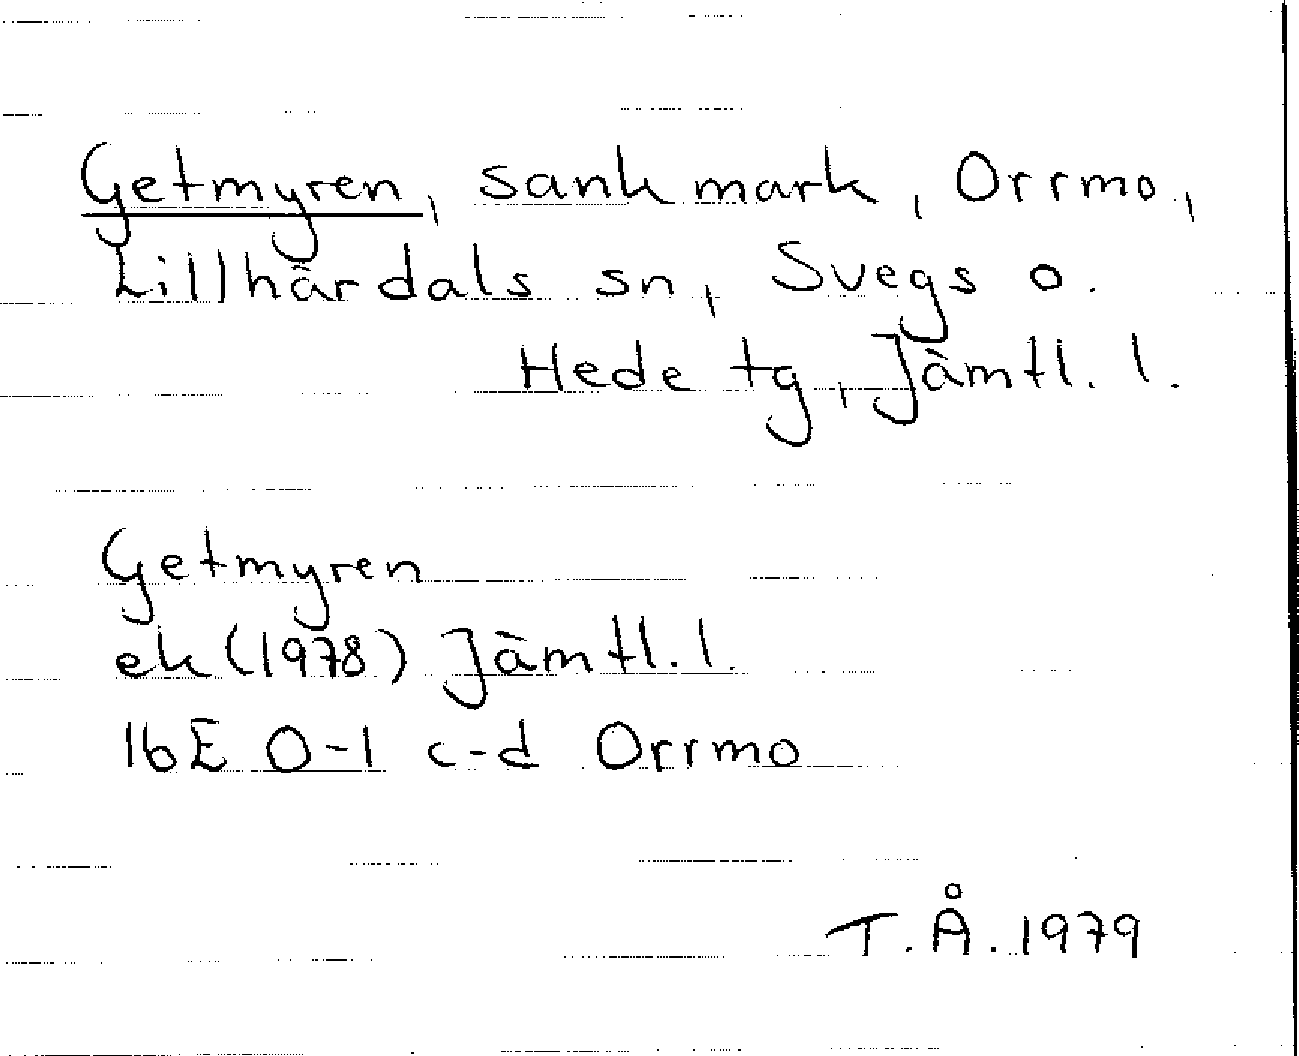 Getmyren, sank mark, Orrmo,
Lillhärdals sn, Svegs o.
Hede tg, Jämtl. l.
Getmyren
ek (1978) Jämtl. l.
16E 0-1 c-d Orrmo
T. Å. 1979